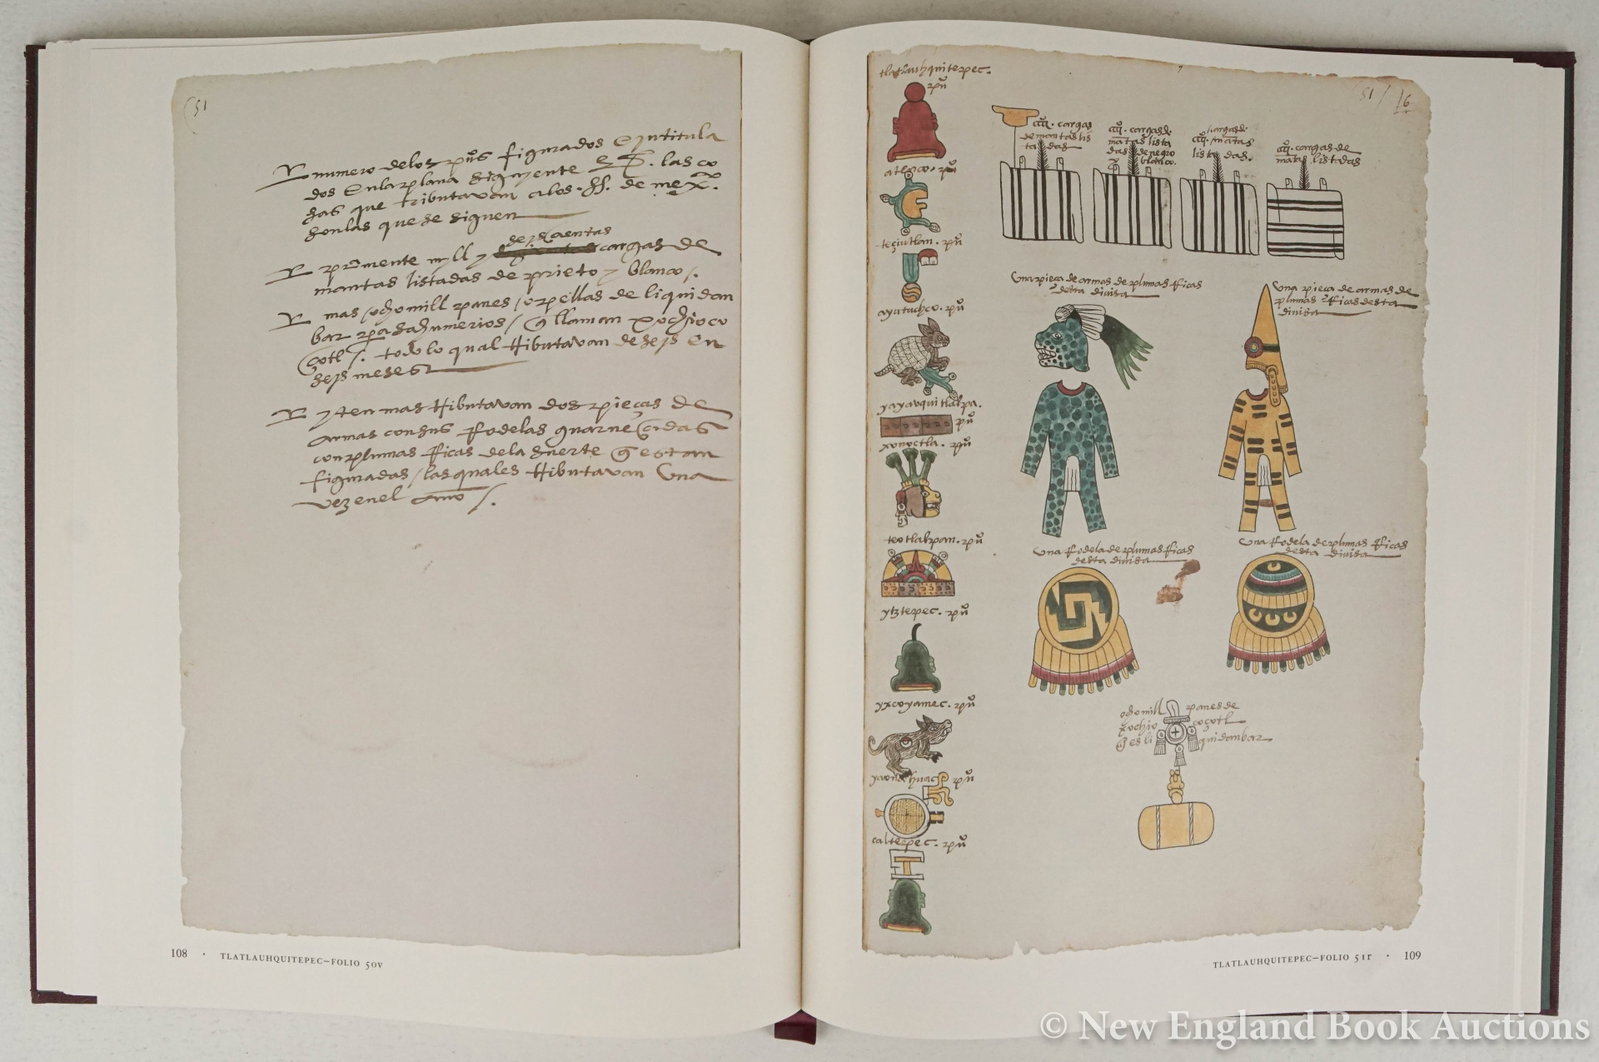 (51
numero delos pūs figurados e yntitula
dos en la plana siguyente
las co
sas que tributavan a los. ss. de mexº.
son las que se siguen
primente mill y
seyscientas
cargas de
mantas listadas de prieto y blanco /.
mas / ocho mill panes / o pellas de liquidan
bar
para sahumerios / q̃ llaman xochioco
çotl /. todo lo qual tributavan de seys en
seys meses
yten mas tributavan dos pieças de
armas con sus rodelas guarneçidas
con plumas ricas de la suerte q̃ estan
figuradas / las quales tributavan una
vez en el año /.
108 · TLATLAUHQUITEPEC–FOLIO 50V
tlatlauhquitepec.
pūº
51 / 16
atenco. pūº
teçiutlan. pūº
ayutuchco. pūº
yayauquitlalpa.
pūº
xonoctla. pūº
teotlalpan. pūº
ytztepec. pūº
yxcoyamec. pūº
yaonahuac pūº
caltepec. pūº
cargas
de mantas lis
tadas.
cargas de
mantas lista
das de negro
blanco.
cargas de
mantas
listadas.
cargas de
mantas listadas
una pieça de armas de plumas ricas
desta divisa
una pieça de armas de
plumas ricas desta
divisa
una rodela de plumas ricas
desta divisa
una rodela de plumas ricas
desta divisa
ocho mill panes de
xochio coçotl
q̃ es li quidanbar
TLATLAUHQUITEPEC–FOLIO 51r · 109
© New England Book Auctions